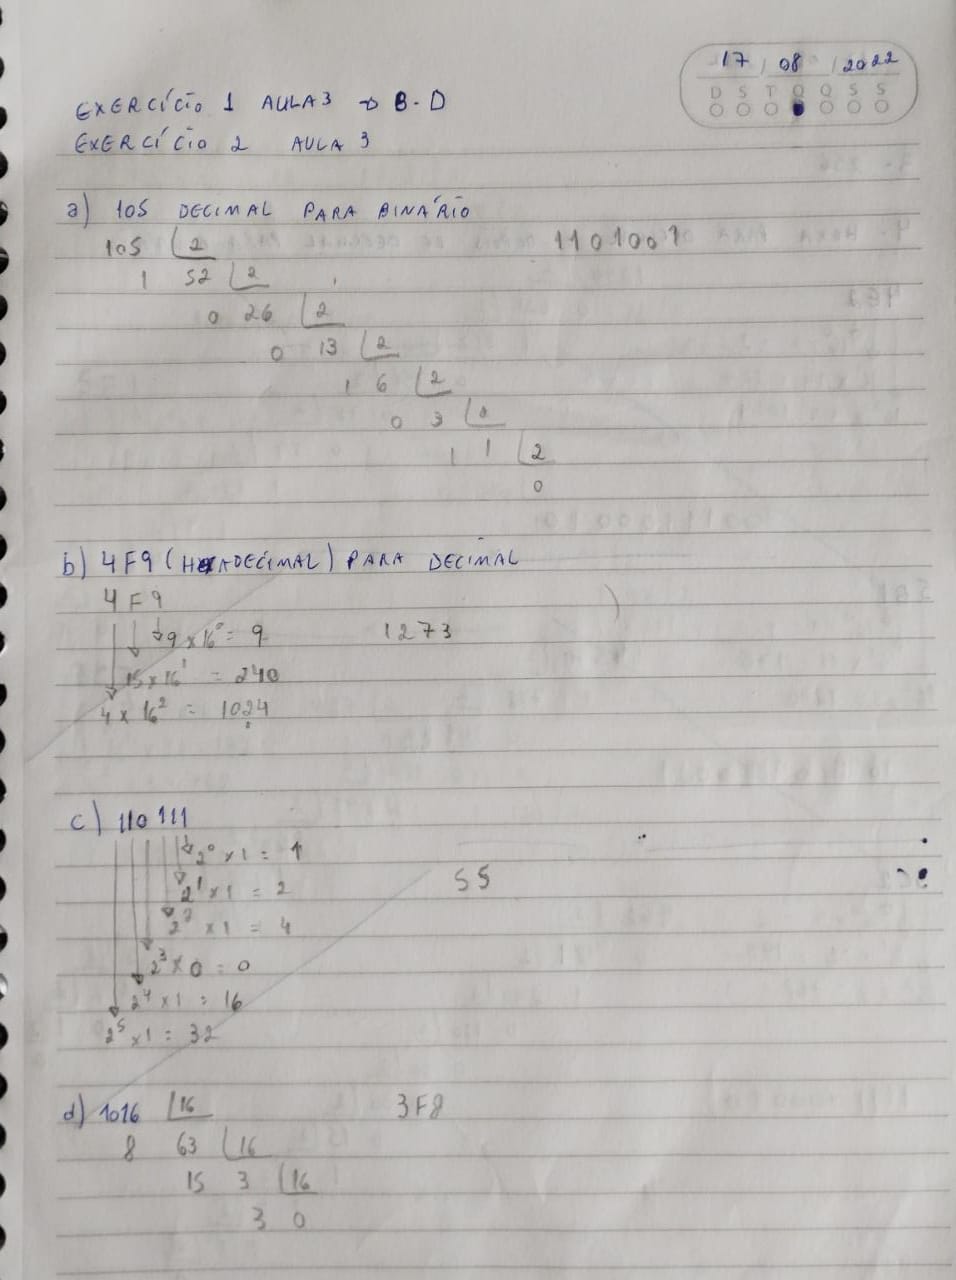 17 / 08 / 2022
D S T Q Q S S
EXERCÍCIO 1 AULA 3 → B - D
EXERCÍCIO 2 AULA 3
a) 105 DECIMAL PARA BINÁRIO
105 2 1101001
1 52 2
0 26 2
0 13 2
1 6 2
0 3 2
1 1 2
0
b) 4F9 (HEXADECIMAL) PARA DECIMAL
4 F 9
9 x 16⁰ = 9 1273
15 x 16¹ = 240
4 x 16² = 1024
c) 110111
2⁰ x 1 = 1
2¹ x 1 = 2 55
2² x 1 = 4
2³ x 0 = 0
2⁴ x 1 = 16
2⁵ x 1 = 32
d) 1016 16 3F8
8 63 16
15 3 16
3 0